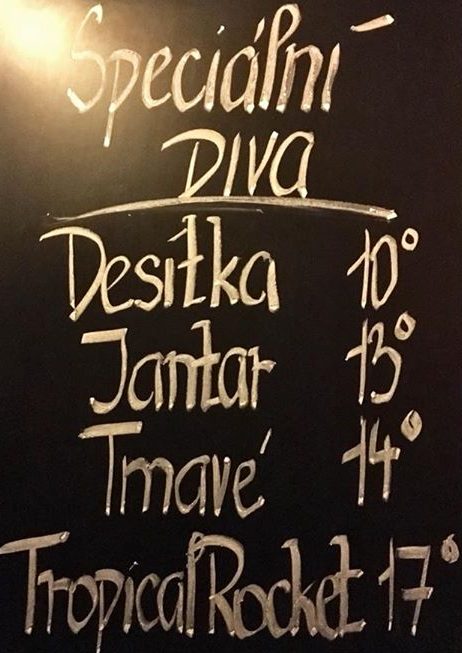 Speciální
piva
Desítka 10°
Jantar 13°
Tmavé 14°
Tropical Rocket 17°